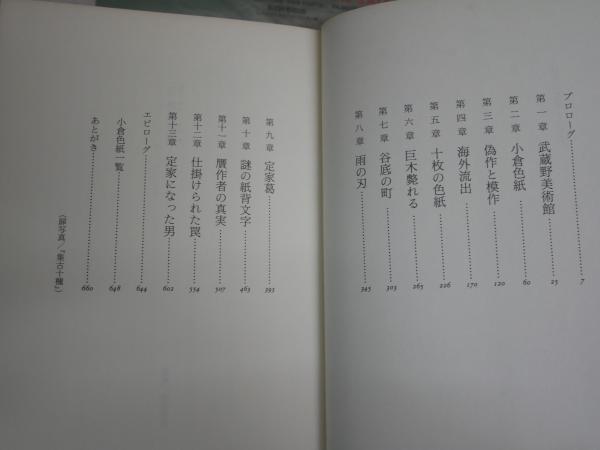 プロローグ……7
第一章 武蔵野美術館……25
第二章 小倉色紙……60
第三章 偽作と模作……120
第四章 海外流出……170
第五章 十枚の色紙……226
第六章 巨木斃れる……265
第七章 谷底の町……303
第八章 雨の刃……345
第九章 定家葛……393
第十章 謎の紙背文字……463
第十一章 贋作者の真実……507
第十二章 仕掛けられた罠……554
第十三章 定家になった男……602
エピローグ……644
小倉色紙一覧……648
あとがき……660
(扉写真/『集古十種』)